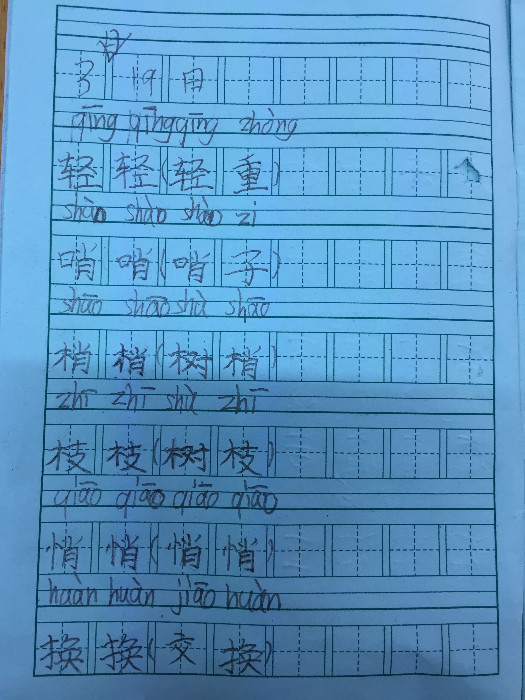 3月19日
qīng qīng qīng zhòng
轻 轻(轻 重)
shào shào shào zi
哨 哨(哨 子)
shāo shāo shù shāo
梢 梢(树 梢)
zhī zhī shù zhī
枝 枝(树 枝)
qiāo qiāo qiāo qiāo
悄 悄(悄 悄)
huàn huàn jiāo huàn
换 换(交 换)